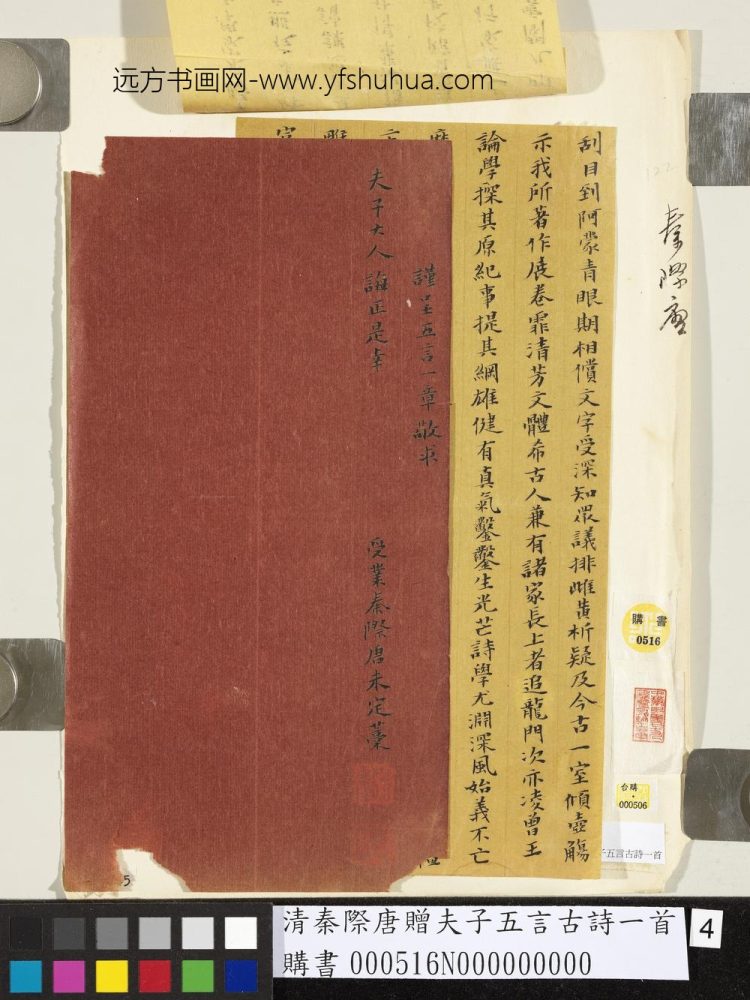 远方书画网-www.yfshuhua.com
刮目到阿蒙青眼期相償文字受深知眾議排雌黃析疑及今古一室傾壺觴
示我所著作展卷霏清芳文體希古人兼有諸家長上者追龍門次亦凌曾王
論學探其原紀事提其綱雄健有真氣鑿鑿生光芒詩學尤淵深風始義不亡
謹呈五言一章敬求
夫子大人誨正是幸
受業秦際唐未定藁
秦際唐
購書
0516
台購
000506
子五言古詩一首
5
清秦際唐贈夫子五言古詩一首
購書 000516N000000000
4